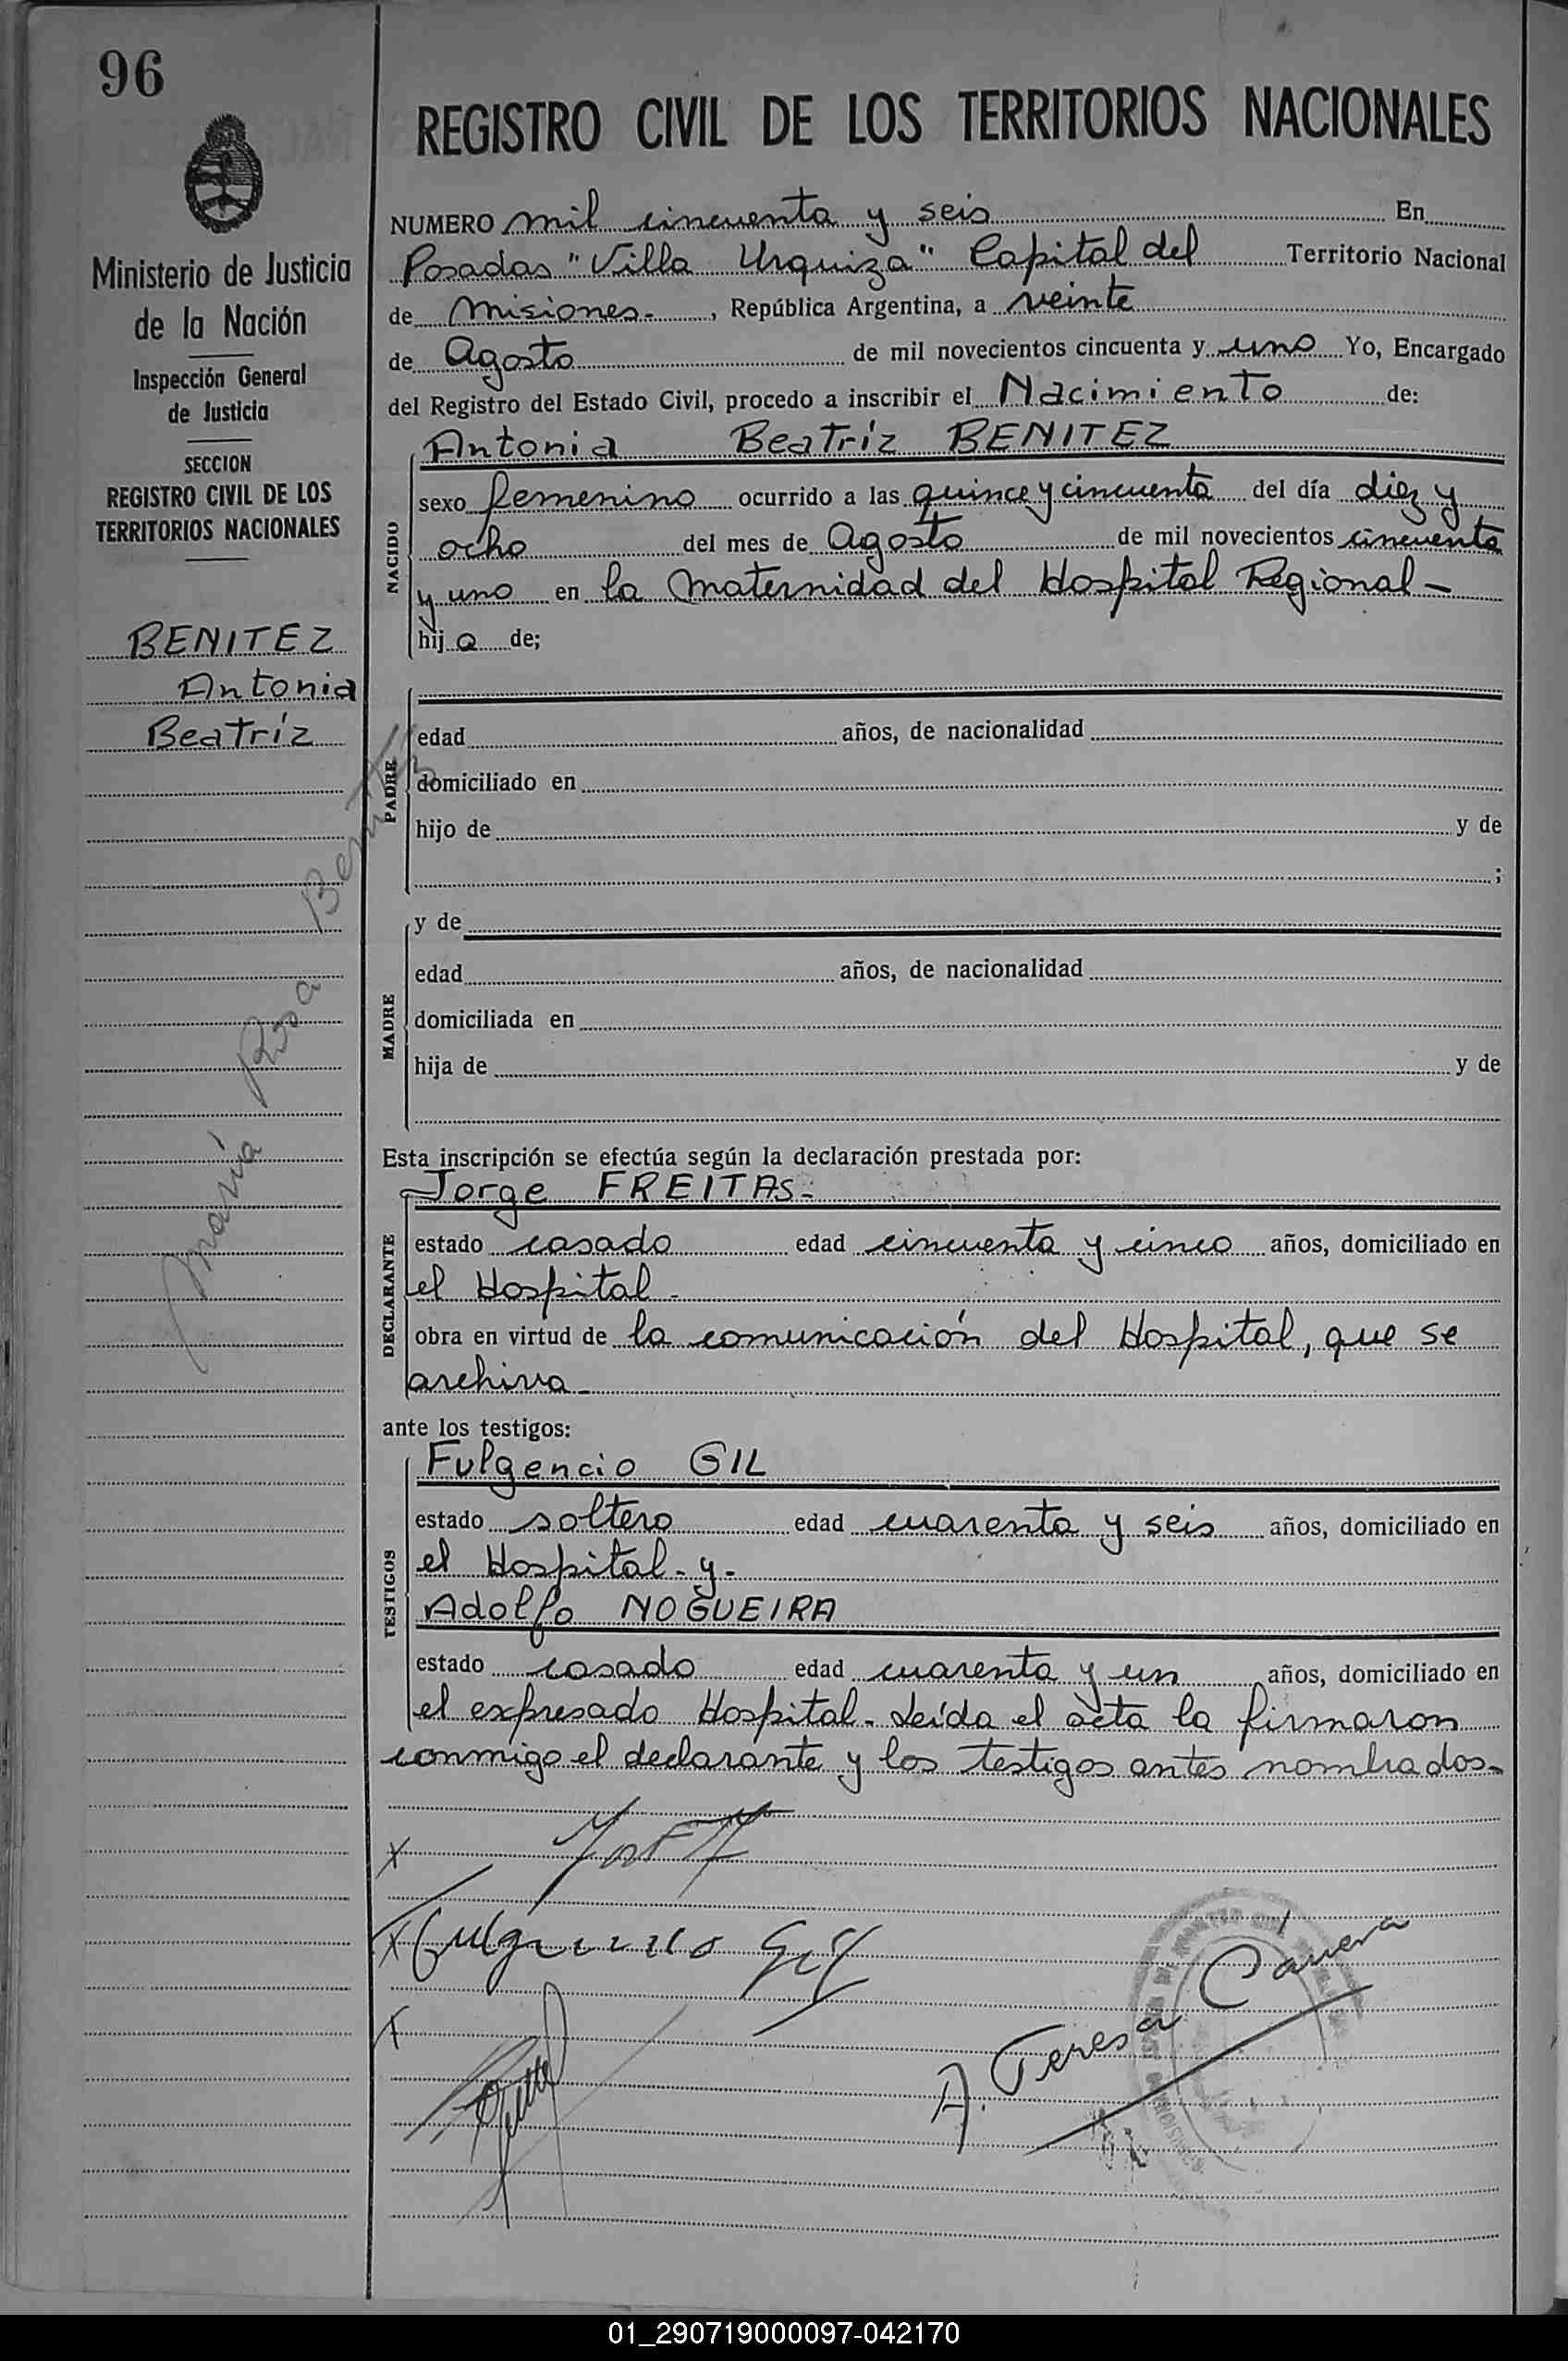 96
Ministerio de Justicia
de la Nación
Inspección General
de Justicia
SECCION
REGISTRO CIVIL DE LOS
TERRITORIOS NACIONALES
BENITEZ
Antonia
Beatríz
María Rosa Benitez
REGISTRO CIVIL DE LOS TERRITORIOS NACIONALES
NUMERO mil cincuenta y seis En
Posadas "Villa Urquiza" Capital del Territorio Nacional
de Misiones.- , República Argentina, a veinte
de Agosto de mil novecientos cincuenta y uno Yo, Encargado
del Registro del Estado Civil, procedo a inscribir el Nacimiento de:
NACIDO
Antonia Beatríz BENITEZ
sexo femenino ocurrido a las quince y cincuenta del día diez y
ocho del mes de Agosto de mil novecientos cincuenta
y uno en la Maternidad del Hospital Regional -
hij a de;
PADRE
edad años, de nacionalidad
domiciliado en
hijo de y de
;
MADRE
y de
edad años, de nacionalidad
domiciliada en
hija de y de
Esta inscripción se efectúa según la declaración prestada por:
DECLARANTE
Jorge FREITAS.-
estado casado edad cincuenta y cinco años, domiciliado en
el Hospital -
obra en virtud de la comunicación del Hospital, que se
archiva -
ante los testigos:
TESTIGOS
Fulgencio GIL
estado soltero edad cuarenta y seis años, domiciliado en
el Hospital - y -
Adolfo NOGUEIRA
estado casado edad cuarenta y un años, domiciliado en
el expresado Hospital - Leída el acta la firmaron
conmigo el declarante y los testigos antes nombrados -
X
X Fulgencio Gil
X
A. Teresa Cánera
01_290719000097-042170